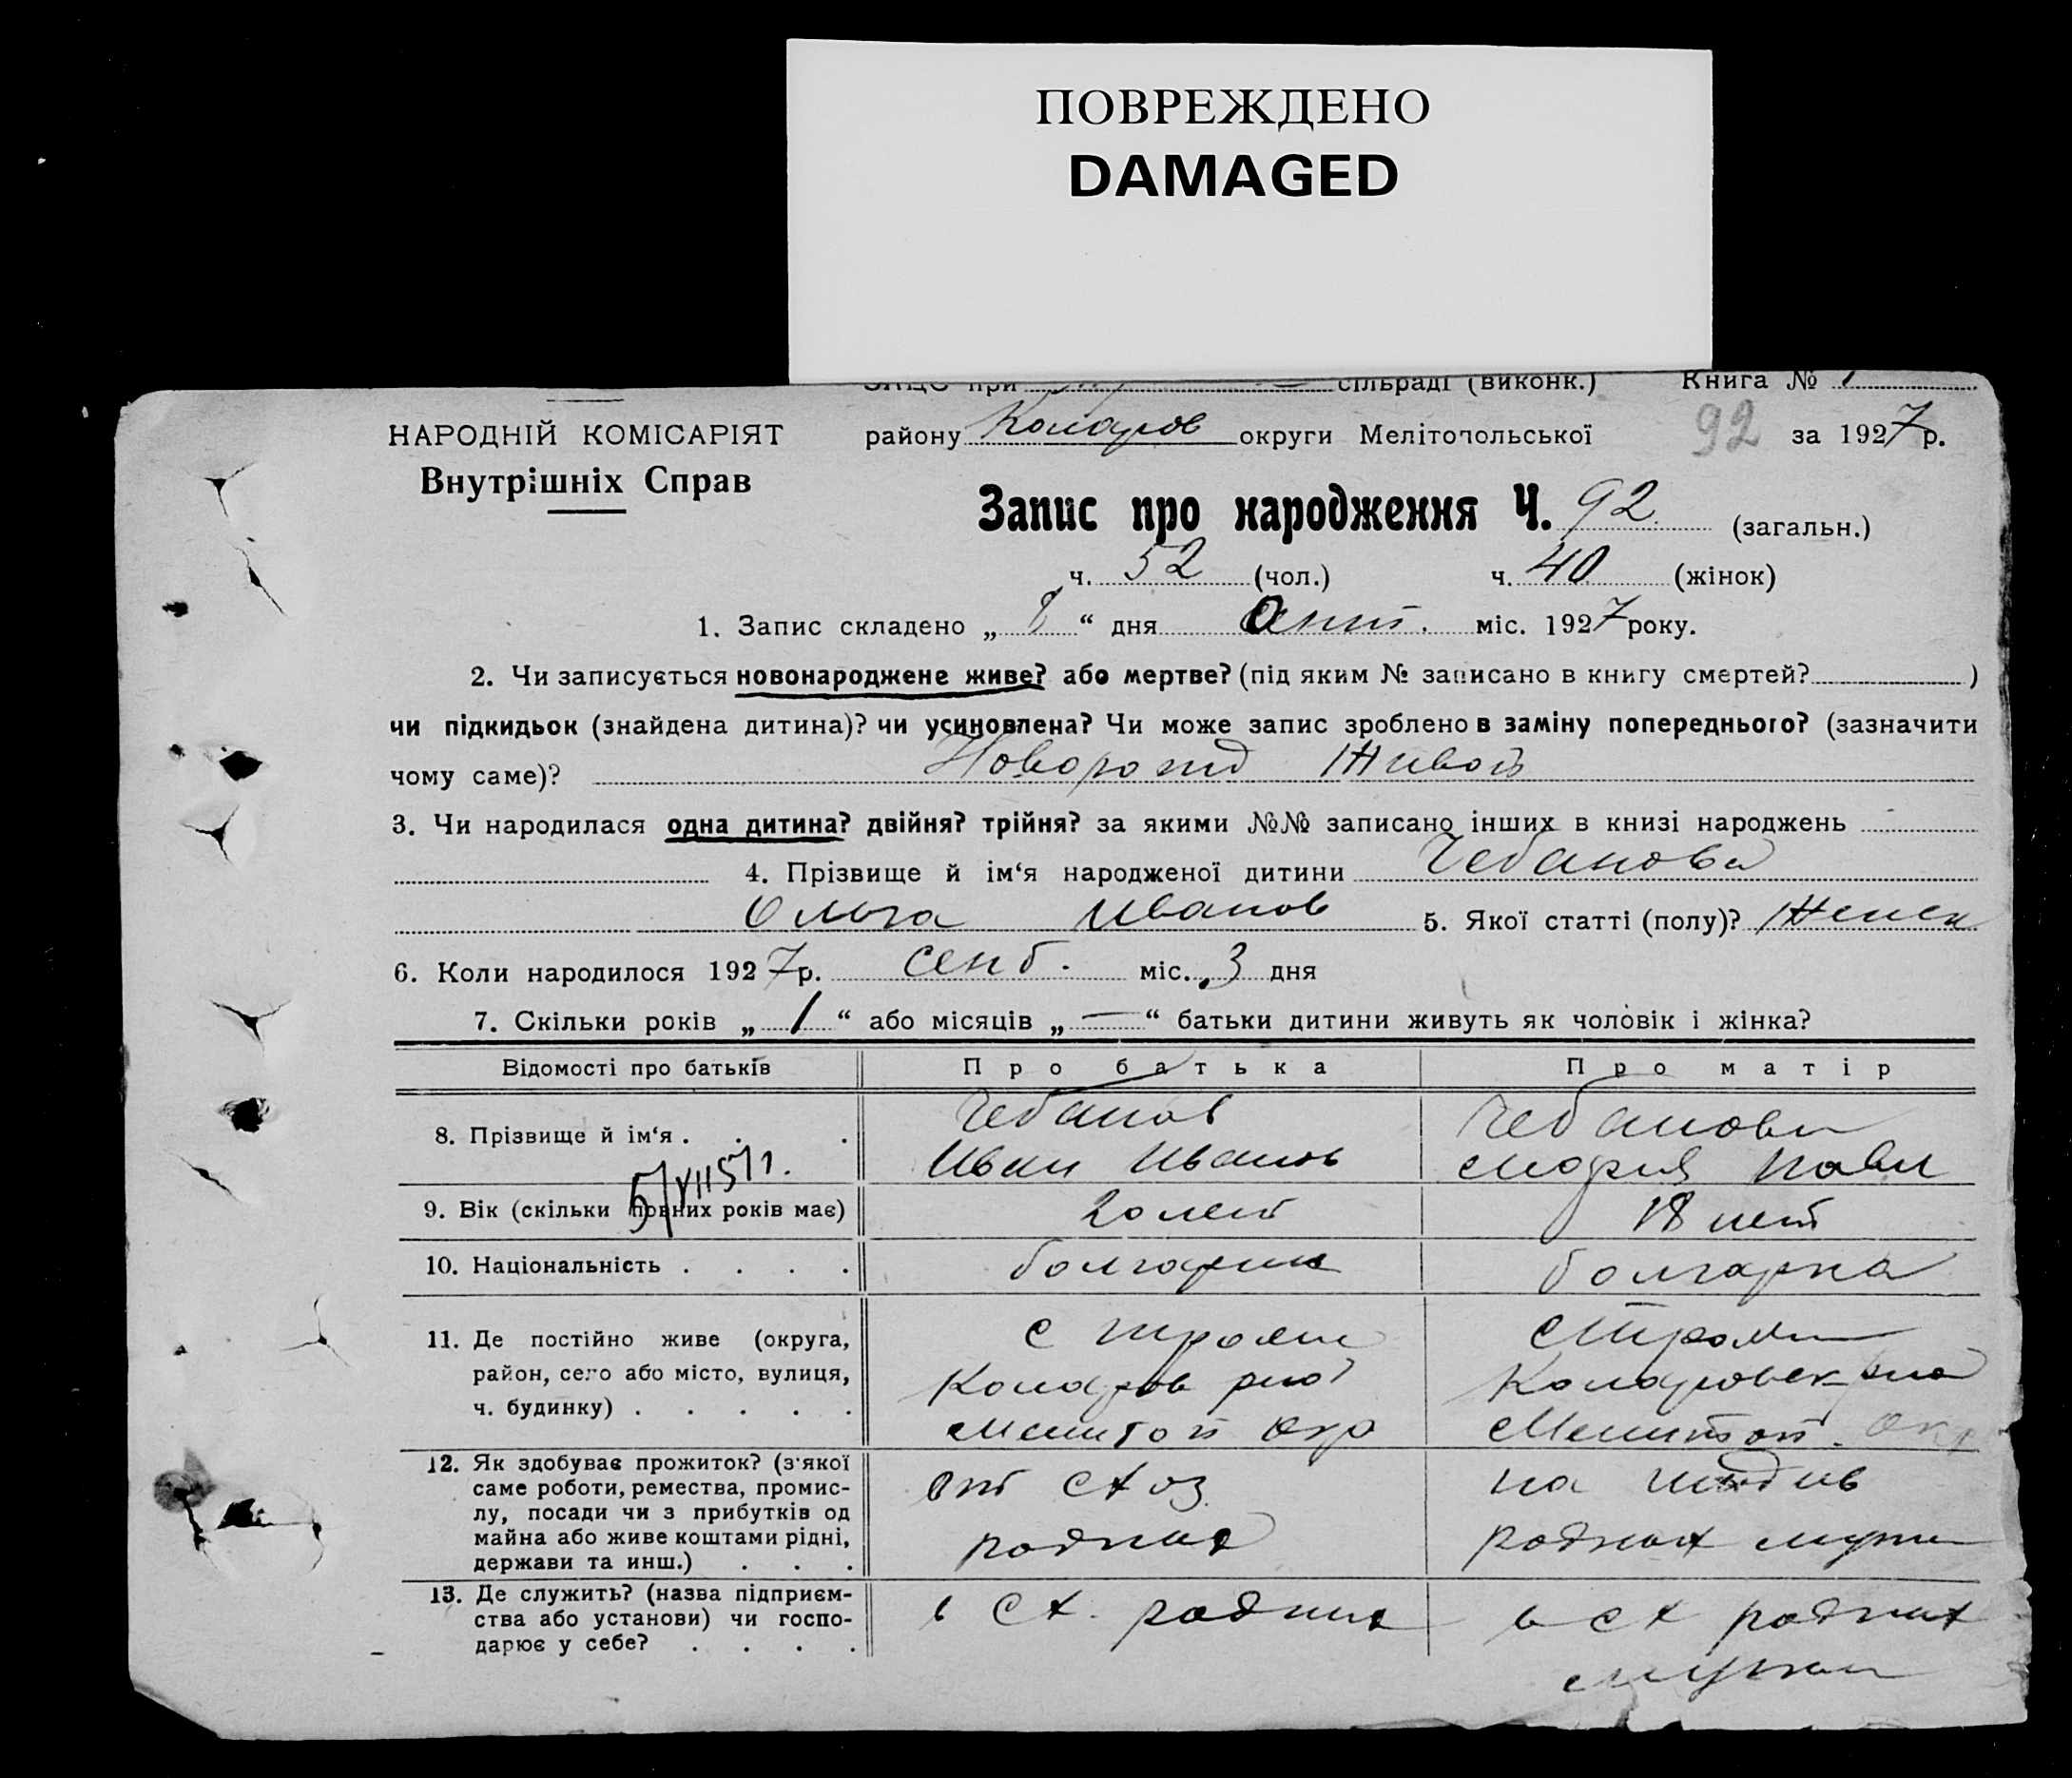 ПОВРЕЖДЕНО
DAMAGED
ЗАЦС при сільраді (виконк.) Книга № 1
НАРОДНІЙ КОМІСАРІЯТ
Внутрішніх Справ
району Коларов округи Мелітопольської 92 за 1927 р.
Запис про народження Ч. 92 (загальн.)
ч. 52 (чол.) ч. 40 (жінок)
1. Запис складено „ 8 “ дня Окт. міс. 1927 року.
2. Чи записується новонароджене живе? або мертве? (під яким № записано в книгу смертей? )
чи підкидьок (знайдена дитина)? чи усиновлена? Чи може запис зроблено в заміну попереднього? (зазначити
чому саме)? Новорожд Живой
3. Чи народилася одна дитина? двійня? трійня? за якими №№ записано інших в книзі народжень
4. Прізвище й ім‘я народженої дитини Чебанова
Ольга Иванов 5. Якої статті (полу)? Женск
6. Коли народилося 1927 р. сент. міс. 3 дня
7. Скільки років „ 1 “ або місяців „ — “ батьки дитини живуть як чоловік і жінка?
Відомості про батьків Про батька Про матір
8. Прізвище й ім‘я . . . Чебанов Чебанова
Иван Иванов Мария Павл
5/VII 51
9. Вік (скільки повних років має) 20 лет 18 лет
10. Національність . . . . болгарин болгарка
11. Де постійно живе (округа,
район, село або місто, вулиця,
ч. будинку) . . . . .
с Трояни
Коларов рна
Мелитоп окр
с Трояни
Коларовск рна
Мелитоп. окр
12. Як здобуває прожиток? (з'якої
саме роботи, ремества, промис-
лу, посади чи з прибутків од
майна або живе коштами рідні,
держави та инш.) . . .
от с х оз.
родных
на иждив
родных мужа
13. Де служить? (назва підприєм-
ства або установи) чи госпо-
дарює у себе? . . . .
в с х. родных
в с х родных
мужа